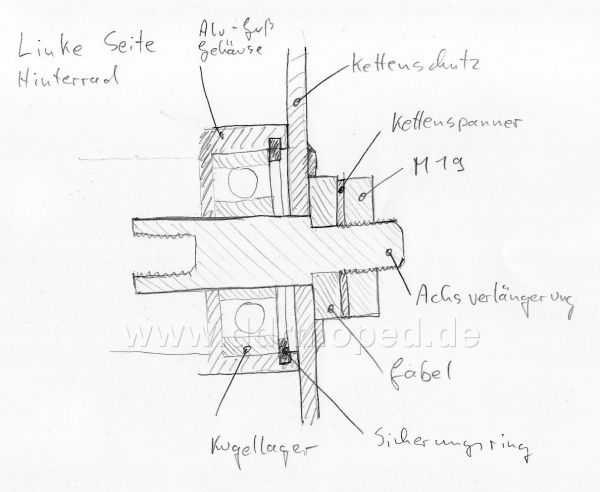 Linke Seite
Hinterrad
Alu-Guß
Gehäuse
Kettenschutz
Kettenspanner
M19
Achsverlängerung
Gabel
Sicherungsring
Kugellager